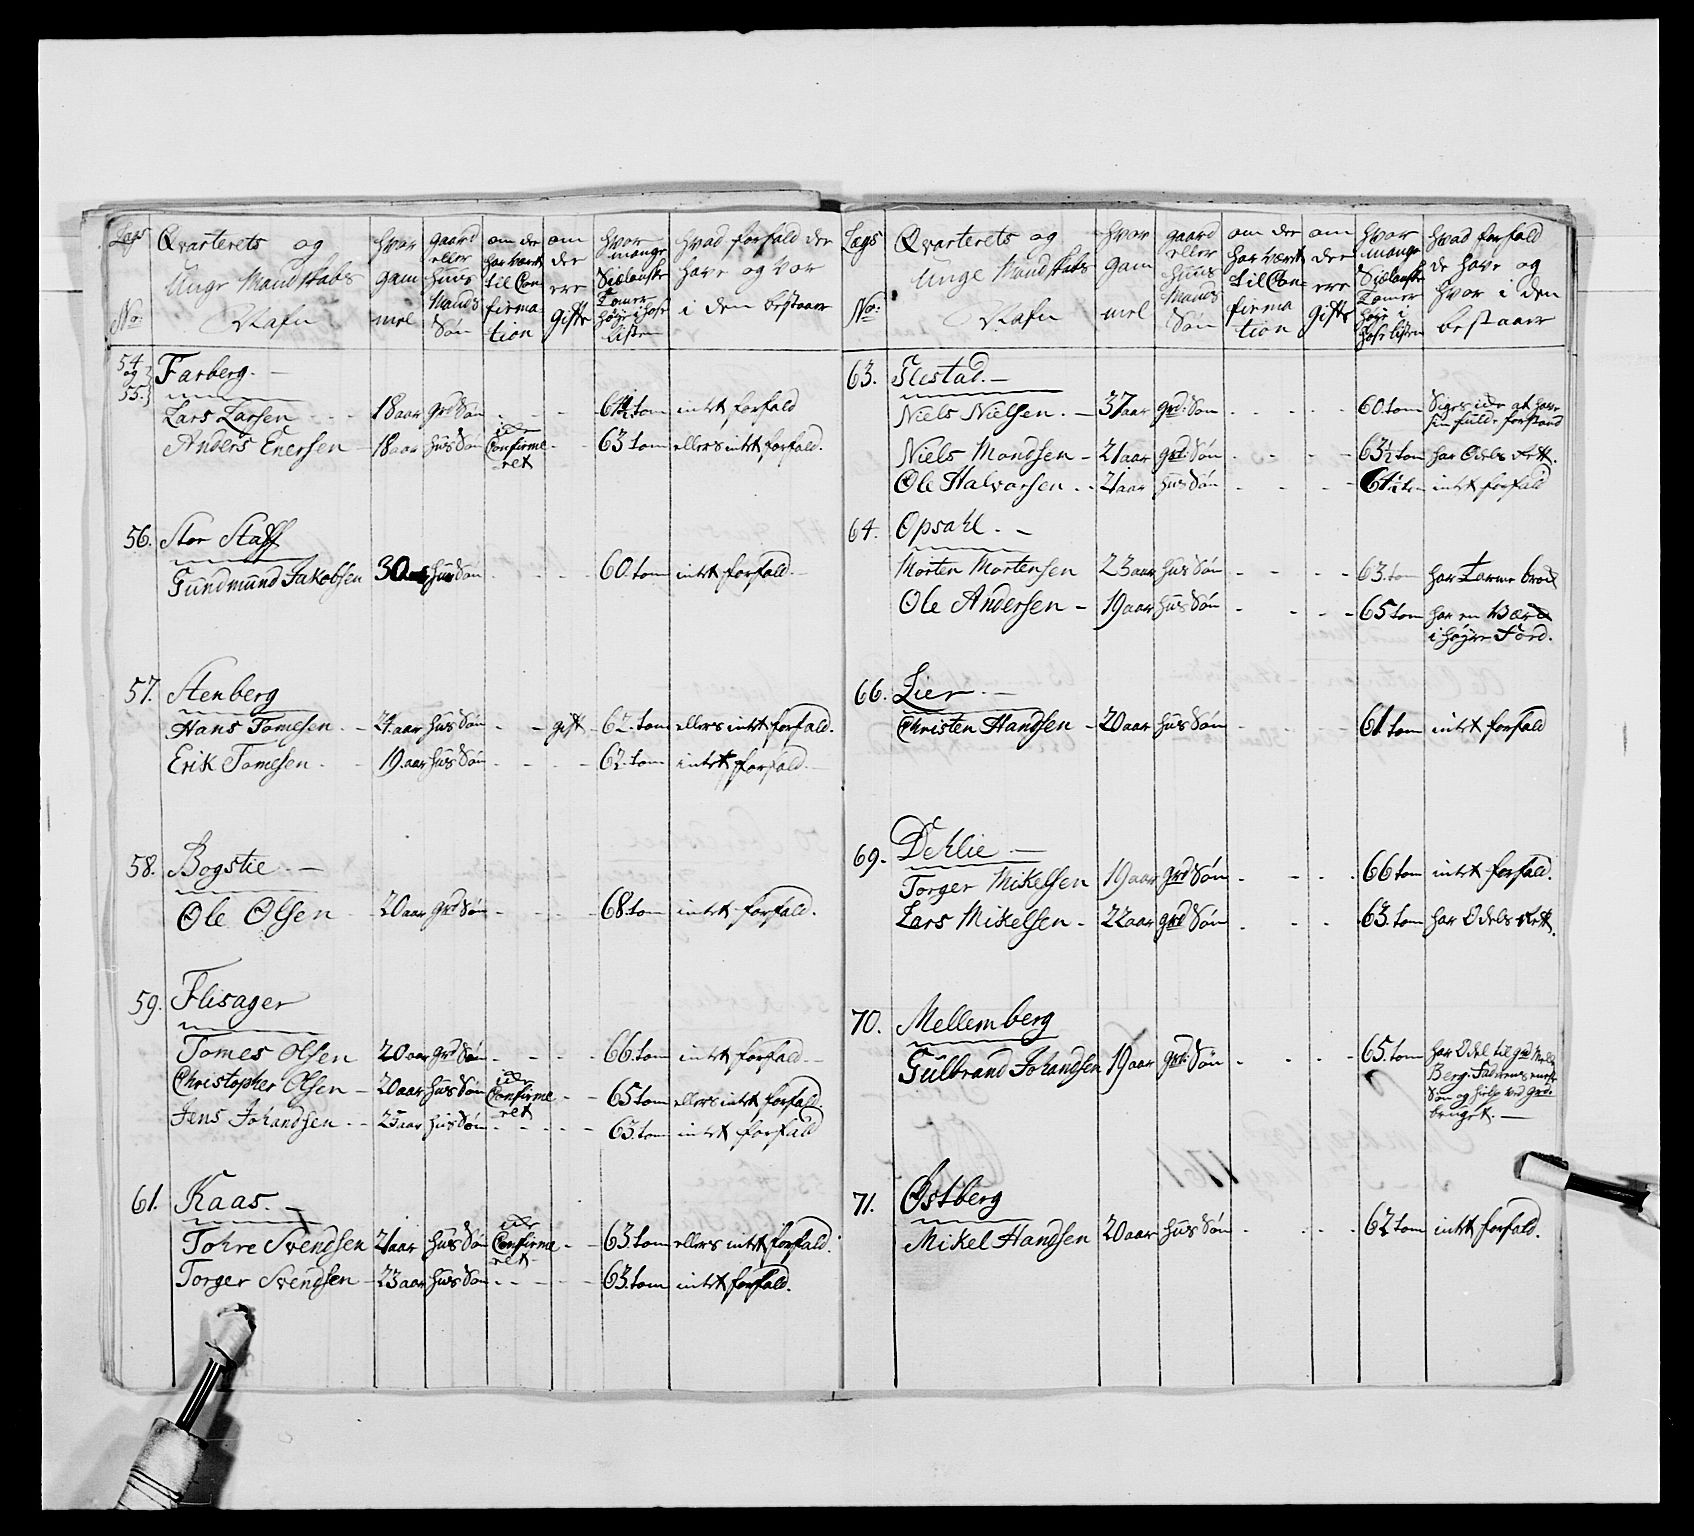 Lægs No:
Qvarterets og Unge Mandskabs Nafn
hvor gam mel
gaard eller huus Mands Søn
om der har været til Con firma tion
om der ere gifte
hvor mange Siælanske Tomer høye i hose listen
hvad forfald der have og vor i dem bestaar
54 og 55.
Farberg. —
Lars Larsen - - - 18 aar grd Søn - - - - 61½ tom intet forfald
Anders Enersen - 18 aar hus Søn Confirme ret - - 63 tom ellers intet forfald.
56. Stor Staff
Gundmund Jakobsen 30 aar hus Søn - - - - 60. tom intet forfald. -
57. Stenberg
Hans Tomesen. - - 24. aar hus Søn - - - gift - 62. tom ellers intet forfald.
Erik Tomesen. - - 19. aar hus Søn - - - - 62. tom intet forfald. -
58. Bogstie. —
Ole Olsen - - 20 aar grd Søn - - - - 68. tom intet forfald.
59. Flisager
Tomes Olsen 20 aar grd Søn - - - - 66. tom intet forfald. -
Christopher Olsen - 20 aar hus Søn Confirme ret - - 65 tom ellers intet forfald
Jens Johandsen. - - 25 aar hus Søn - - - - - 63. tom intet forfald
61. Kaas. —
Tohre Svendsen 21 aar hus Søn Confirme ret - - 63. tom ellers intet forfald.
Torger Svendsen - 23 aar hus Søn - - - - - 63. tom intet forfald.
Lægs No:
Qvarterets og Unge Mandskabs Nafn
hvor gam mel
gaard eller huus Mands Søn
om der har været til Con- firma tion
om der ere gifte
hvor mange Siælanske Tomer høye i hose listen
hvad forfald de have og hvor i den bestaar
63. Flestad. —
Niels Nielsen. — 37 aar grd: Søn - - - - - 60 tom Siges icke at have sin fulde forstand
Niels Mondsen - 21 aar grd: Søn - - - - 63½ tom har Odels Rett.
Ole Halvorsen - - 21 aar hus Søn - - - - 61½ tom intet forfald
64. Opsahl. —
Morten Mortensen 23 aar hus Søn - - - - 63. tom har Tarme brod
Ole Andersen - 19 aar hus Søn - - - - 65 tom har en
i høyre Fod.
66. Lier. —
Christen Handsen - 20 aar hus Søn - - - - 61. tom intet forfald
69. Dehlie —
Torger Mikelsen 19 aar grd Søn - - - - 66 tom intet forfald.
Lars Mikelsen - 22 aar grd Søn - - - 63. tom har Odels Rett.
70. Mellemberg
Gulbrand Johandsen 19 aar grd: Søn - - - - 65. tom har Odel til grd Mell.
Berg. Faderens eneste
Søn og hielp ved grds
bruget. —
71. Østberg
Mikel Handsen 20 aar hus Søn - - - - 62 tom intet forfald.